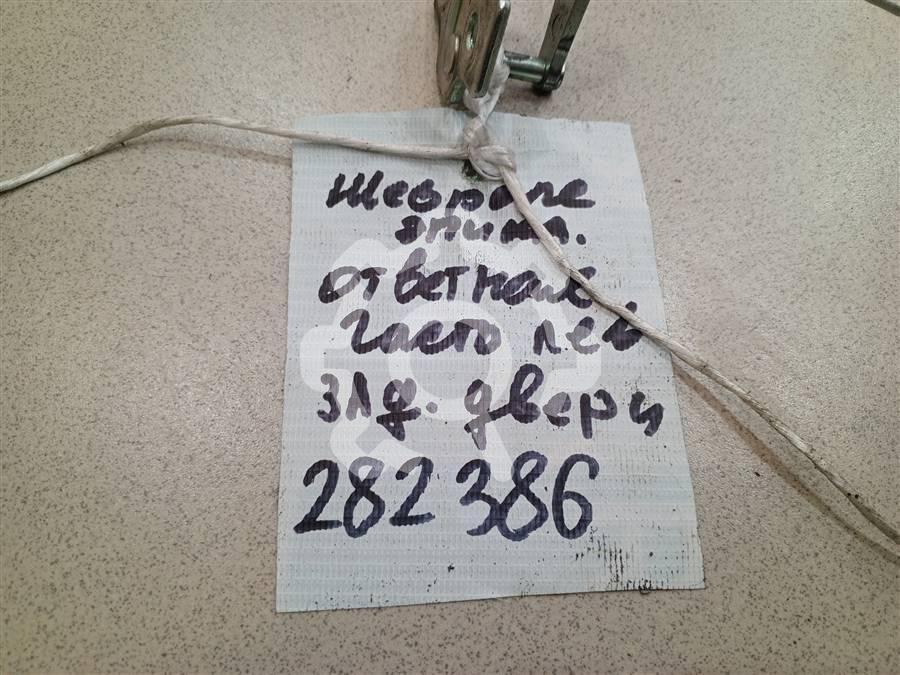 Шевроле
эпика.
ответная
часть лев
зад. двери
282386